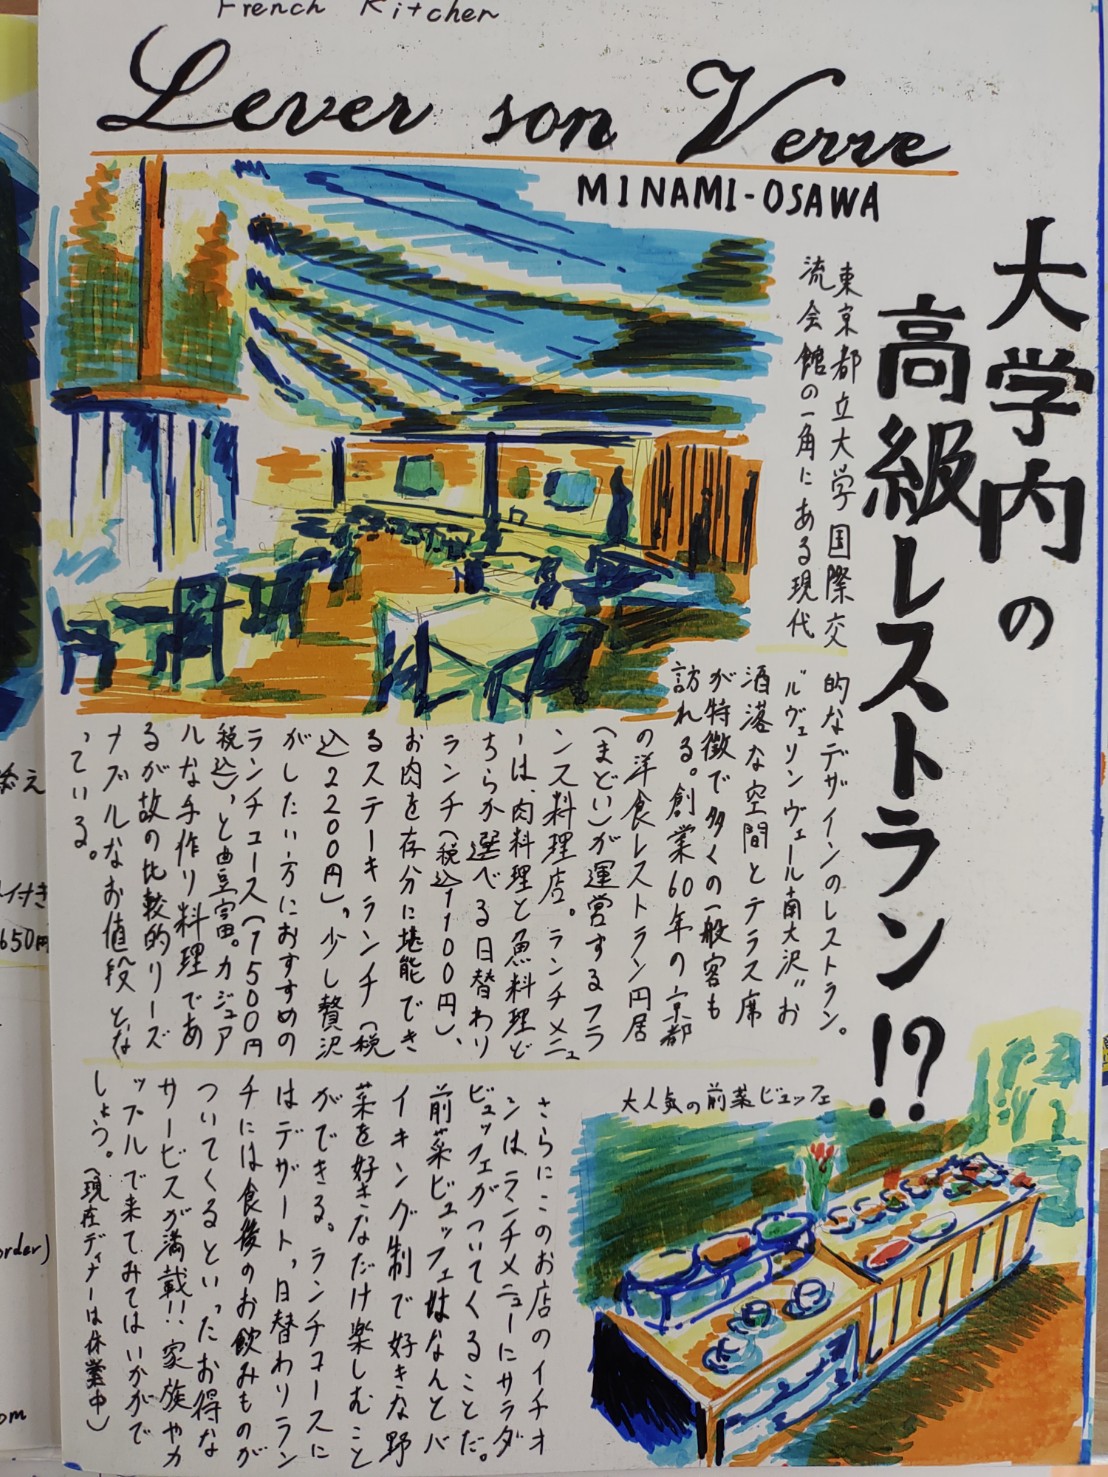 French Kitchen
Lever son Verre
MINAMI-OSAWA
大学内の
高級レストラン!?
東京都立大学国際交
流会館の一角にある現代
的なデザインのレストラン。
"ルヴェソンヴェール南大沢"お
洒落な空間とテラス席
が特徴で多くの一般客も
訪れる。創業60年の京都
の洋食レストラン円居
(まどい)が運営するフラ
ンス料理店。ランチメニュ
ーは、肉料理と魚料理ど
ちらか選べる日替わり
ランチ(税込1100円)、
お肉を存分に堪能でき
るステーキランチ(税
込2200円)。少し贅沢
がしたい方におすすめの
ランチコース(1500円
税込)、と豊富。カジュア
ルな手作り料理であ
るが故の比較的リーズ
ナブルなお値段とな
っている。
大人気の前菜ビュッフェ
さらにこのお店のイチオ
シはランチメニューにサラダ
ビュッフェがついてくることだ。
前菜ビュッフェはなんとバ
イキング制で好きな野
菜を好きなだけ楽しむこと
ができる。ランチコースに
はデザート、日替わりラン
チには食後のお飲みものが
ついてくるといったお得な
サービスが満載!!家族やカ
ップルで来てみてはいかがで
しょう。(現在ディナーは休業中)
添え
付き
650円
order)
om